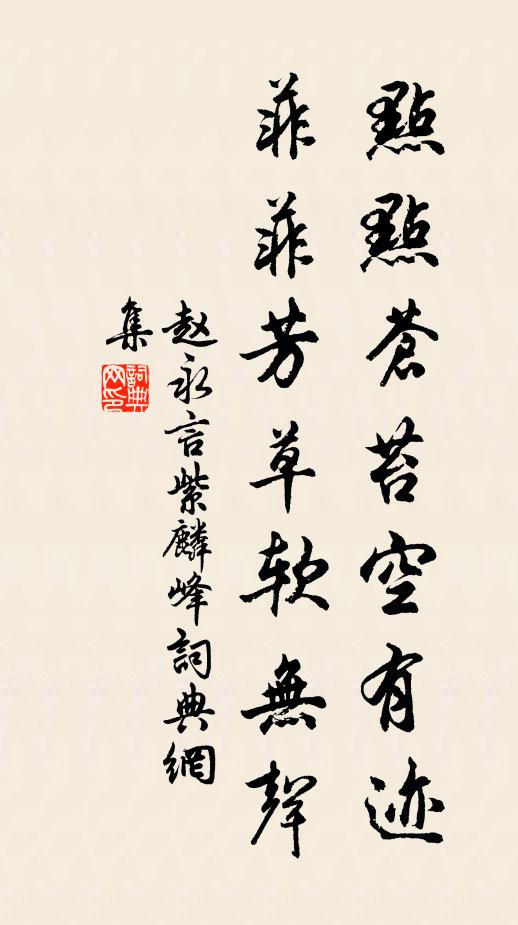 點點蒼苔空有迹
菲菲芳草軟無聲
赵永言紫麟峰詞典網
集
詞典
网印